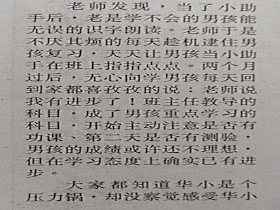 老师发现，当了小助
手后，老是学不会的男孩能
无误的识字朗读。老师于是
不厌其烦的每天趁机逮住男
孩复习，天天让男孩当小助
手在班上指指点点。两个月
过后，无心向学男孩每天回
到家都喜孜孜的说：老师说
我有进步了！班主任教导的
科目，成了男孩重点学习的
科目，开始主动注意是否有
功课、第二天是否有测验，
男孩的成绩或许还不理想，
但在学习态度上确实已有进
步。
大家都知道华小是个
压力锅，却没察觉感受华小